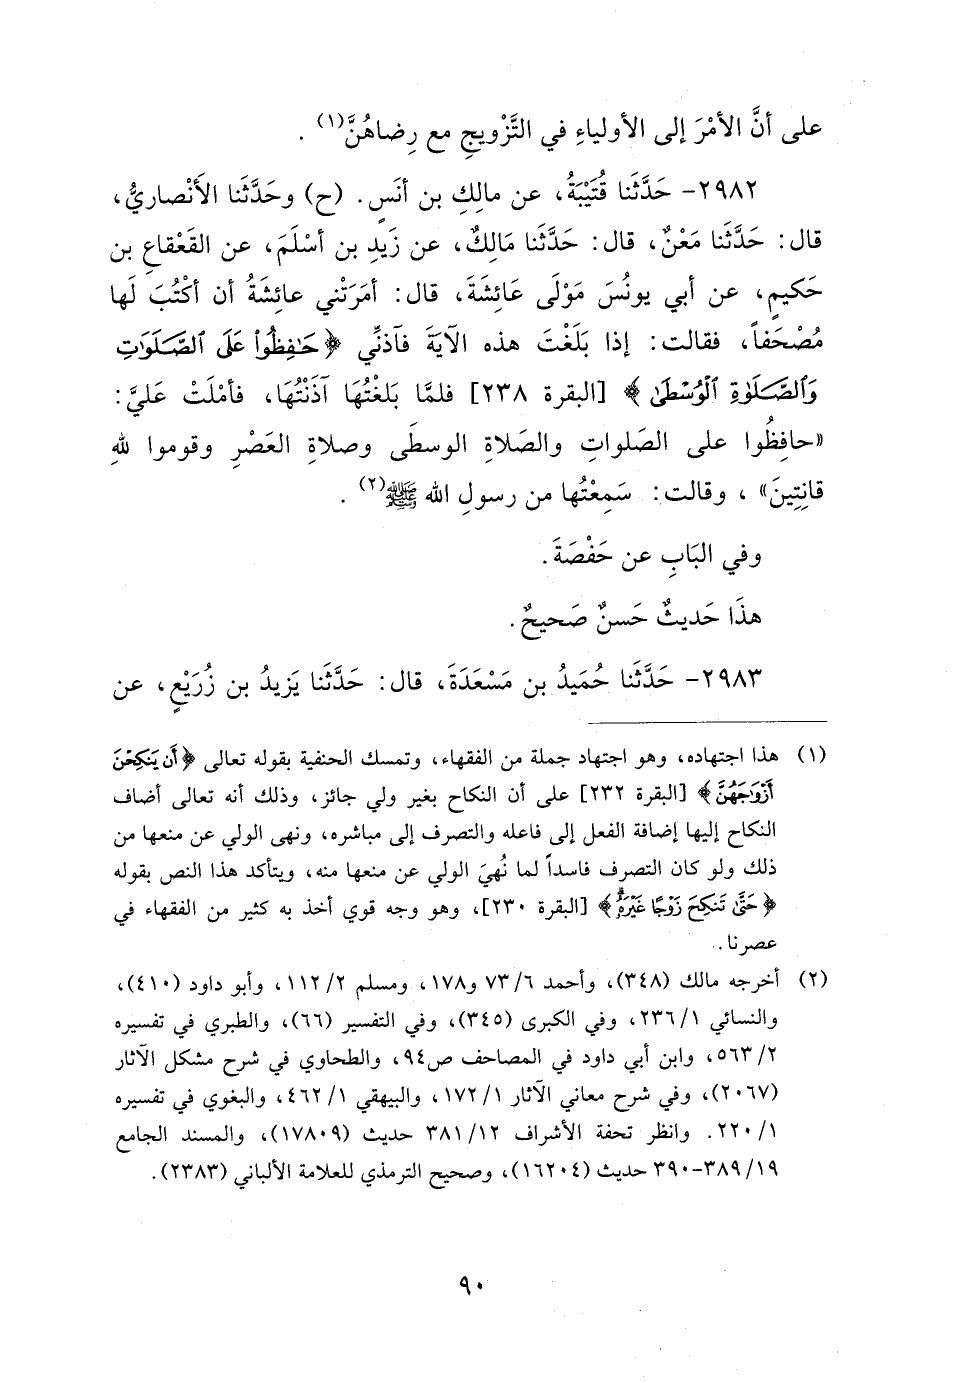 على أنَّ الأمْرَ إلى الأولياءِ في التَّزْويجِ مع رِضاهُنَّ(١) .
٢٩٨٢- حَدَّثَنا قُتَيْبَةُ، عن مالِكِ بن أنَسٍ. (ح) وحَدَّثَنا الأَنْصاريُّ،
قال: حَدَّثَنا مَعْنٌ، قال: حَدَّثَنا مَالِكٌ، عن زَيدِ بن أسْلَمَ، عن القَعْقاعِ بن
حَكيمٍ، عن أبي يونُسَ مَوْلَى عَائِشَةَ، قال: أمَرَتْني عائِشَةُ أن أكْتُبَ لَها
مُصْحَفاً، فقالت: إذا بَلَغْتَ هذه الآيَةَ فآذنِّي ﴿حَٰفِظُوا۟ عَلَى ٱلصَّلَوَٰتِ
وَٱلصَّلَوٰةِ ٱلْوُسْطَىٰ﴾ [البقرة ٢٣٨] فلمَّا بَلغْتُهَا آذَنْتُهَا، فأمْلَتْ عَليَّ:
«حافِظُوا على الصَلواتِ والصَّلاةِ الوسطَى وصلاةِ العَصْرِ وقوموا للهِ
قانِتِينَ» ، وقالت: سَمِعْتُها من رسولِ الله ﷺ(٢) .
وفي البَابِ عن حَفْصَةَ.
هذَا حَديثٌ حَسنٌ صَحيحٌ.
٢٩٨٣- حَدَّثَنا حُمَيدُ بن مَسْعَدَةَ، قال: حَدَّثَنا يَزيدُ بن زُرَيْعٍ، عن
(١) هذا اجتهاده، وهو اجتهاد جملة من الفقهاء، وتمسك الحنفية بقوله تعالى ﴿أَن يَنكِحْنَ
أَزْوَٰجَهُنَّ﴾ [البقرة ٢٣٢] على أن النكاح بغير ولي جائز، وذلك أنه تعالى أضاف
النكاح إليها إضافة الفعل إلى فاعله والتصرف إلى مباشره، ونهى الولي عن منعها من
ذلك ولو كان التصرف فاسداً لما نُهيَ الولي عن منعها منه، ويتأكد هذا النص بقوله
﴿حَتَّىٰ تَنكِحَ زَوْجًا غَيْرَهُۥ﴾ [البقرة ٢٣٠]، وهو وجه قوي أخذ به كثير من الفقهاء في
عصرنا.
(٢) أخرجه مالك (٣٤٨)، وأحمد ٦/ ٧٣ و١٧٨، ومسلم ٢/ ١١٢، وأبو داود (٤١٠)،
والنسائي ١/ ٢٣٦، وفي الكبرى (٣٤٥)، وفي التفسير (٦٦)، والطبري في تفسيره
٢/ ٥٦٣، وابن أبي داود في المصاحف ص٩٤، والطحاوي في شرح مشكل الآثار
(٢٠٦٧)، وفي شرح معاني الآثار ١/ ١٧٢، والبيهقي ١/ ٤٦٢، والبغوي في تفسيره
١/ ٢٢٠. وانظر تحفة الأشراف ١٢/ ٣٨١ حديث (١٧٨٠٩)، والمسند الجامع
١٩/ ٣٨٩-٣٩٠ حديث (١٦٢٠٤)، وصحيح الترمذي للعلامة الألباني (٢٣٨٣).
٩٠